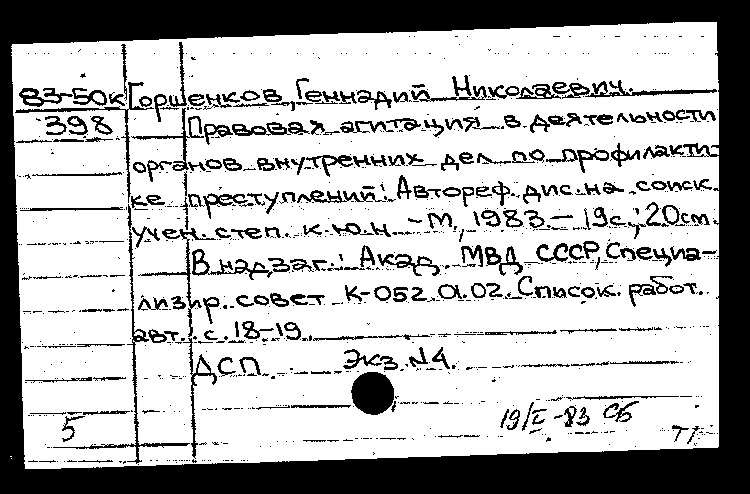 83-50к Горшенков, Геннадий Николаевич.
398 Правовая агитация в деятельности
органов внутренних дел по профилакти-
ке преступлений: Автореф. дис. на соиск.
учен. степ. к.ю.н. - М., 1983. - 19с.; 20см.
В надзаг.: Акад. МВД СССР, Специа-
лизир. совет К-052.01.02. Список работ
авт.: с. 18-19.
ДСП. Экз. N4.
5 19/I-83 СБ